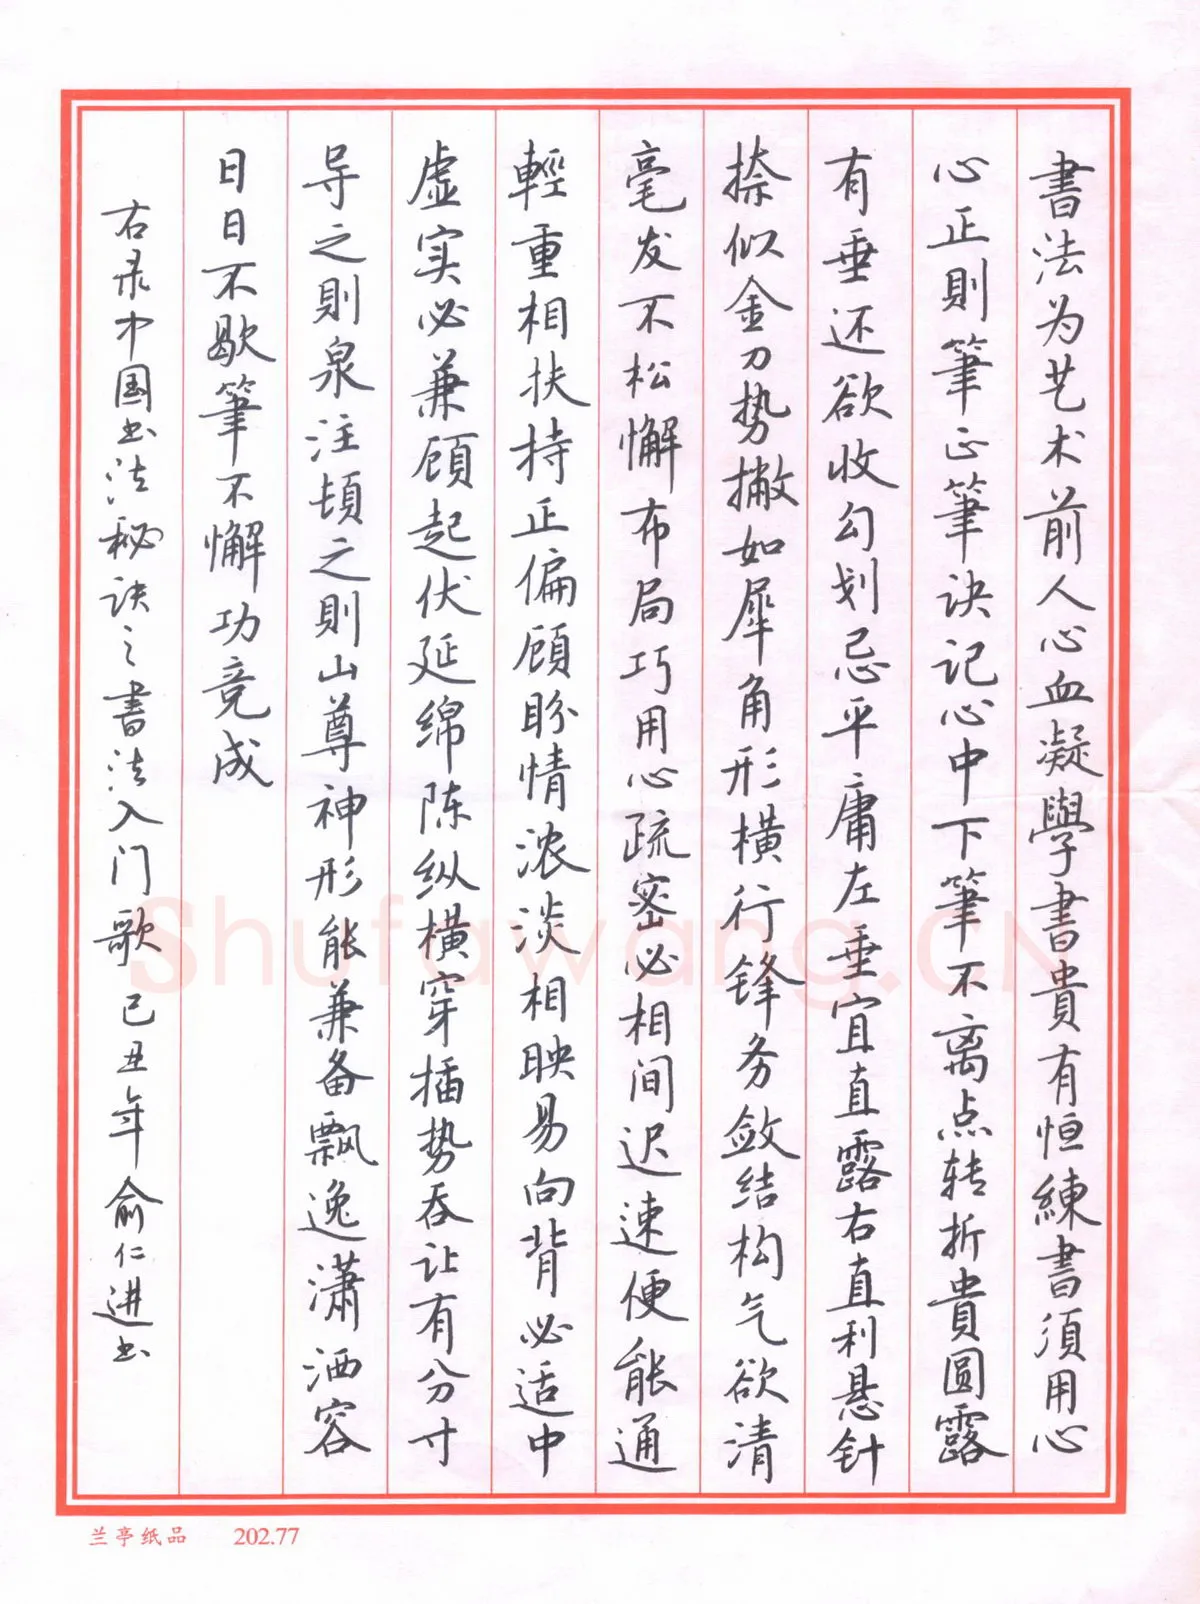 書法为艺术前人心血凝學書貴有恒練書須用心
心正則筆正筆诀记心中下筆不离点转折貴圆露
有垂还欲收勾划忌平庸左垂宜直露右直利悬针
捺似金刀势撇如犀角形横行锋务敛结构气欲清
毫发不松懈布局巧用心疏密必相间迟速便能通
輕重相扶持正偏顾盼情浓淡相映易向背必适中
虚实必兼顾起伏延绵陈纵横穿插势吞让有分寸
导之則泉注頓之則山尊神形能兼备飘逸潇洒容
日日不歇筆不懈功竞成
右录中国书法秘诀之書法入门歌 己丑年俞仁进书
Shufawang.CN
兰亭纸品 202.77